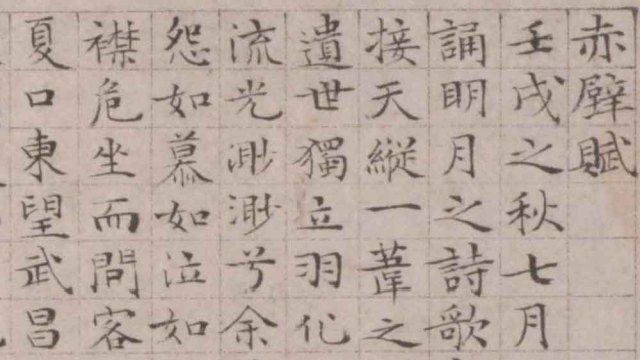 赤壁賦
壬戌之秋七月
誦明月之詩歌
接天縱一葦之
遺世獨立羽化
流光渺渺兮余
怨如慕如泣如
襟危坐而問客
夏口東望武昌